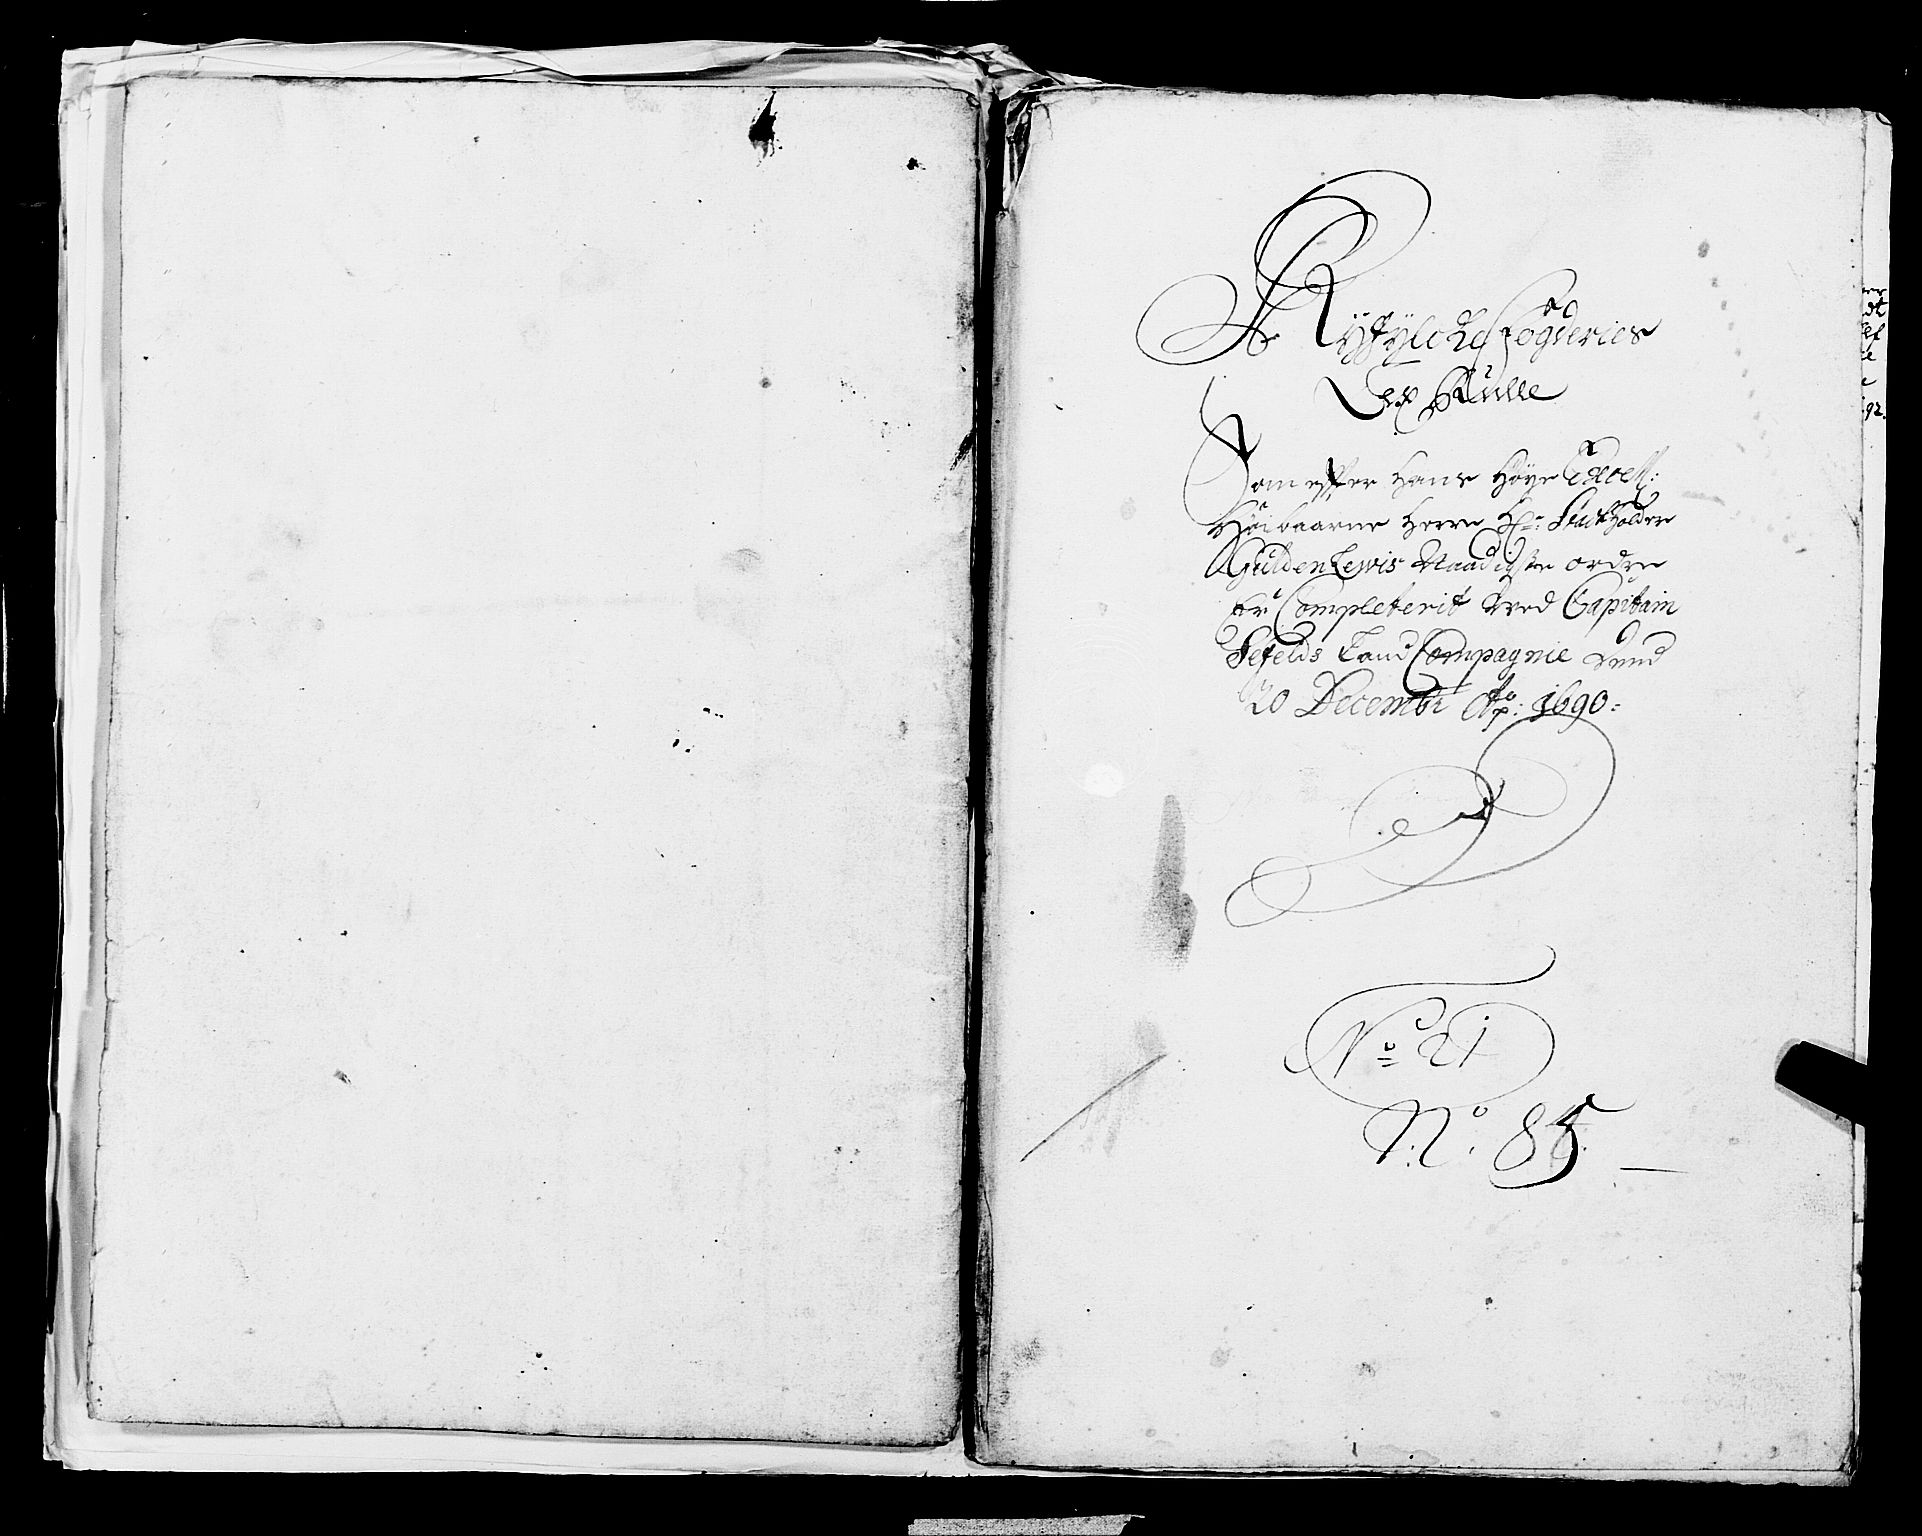 Ryfylcke Fögderies
Lex Rulle
Som effter Hans Høye Excell:
Høibaarne Herre Hr: Stadtholder
Güldenlewis Naadigste ordre
er Completerit Wed Capitain
Sefelds Land Compagnie Dend
20 Decembr Ao: 1690:
No 21
No. 85